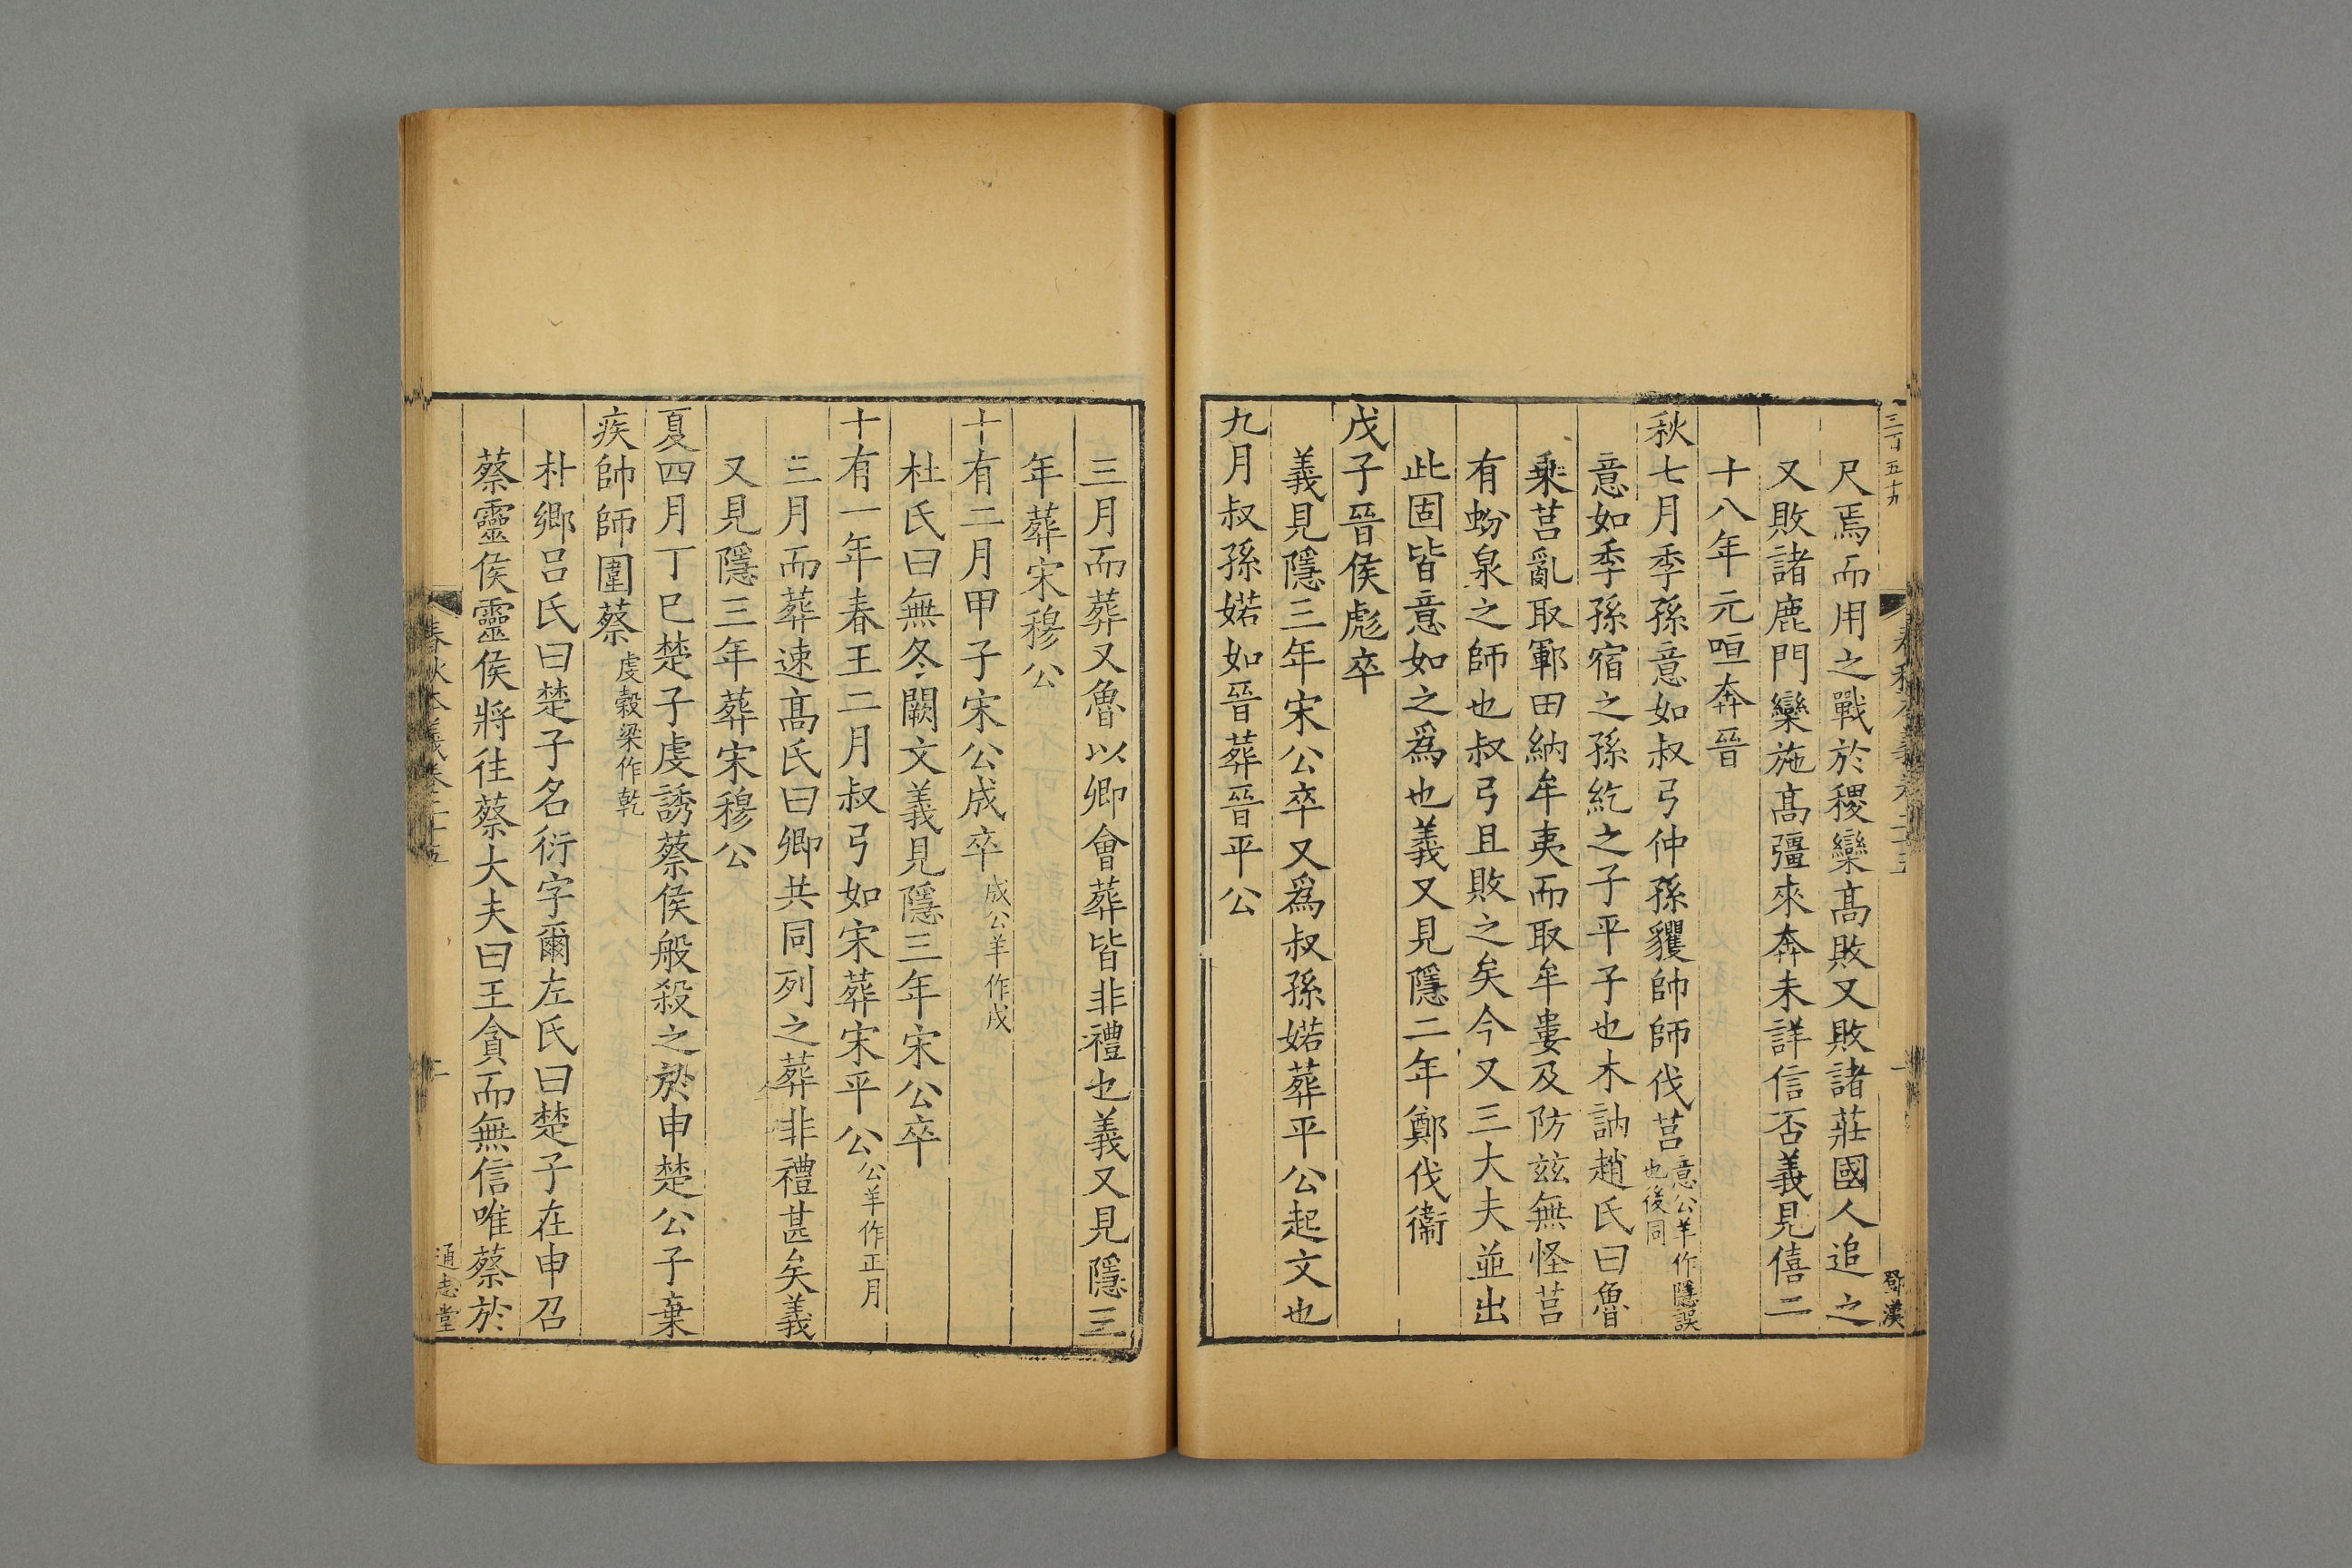 尺焉而用之戰於稷欒髙敗又敗諸莊國人追之
又敗諸鹿門欒施髙彊來奔未詳信否義見僖二
十八年元咺奔晉
秋七月季孫意如叔弓仲孫貜帥師伐莒意公羊作隱誤
也後同
意如季孫宿之孫紇之子平子也木訥趙氏曰魯
乗莒亂取鄆田納牟夷而取牟婁及防兹無怪莒
有蚡泉之師也叔弓且敗之矣今又三大夫並出
此固皆意如之爲也義又見隱二年鄭伐衞
戊子晉侯彪卒
義見隱三年宋公卒又爲叔孫婼葬平公起文也
九月叔孫婼如晉葬晉平公
三月而葬又魯以卿會葬皆非禮也義又見隱三
年葬宋穆公
十有二月甲子宋公成卒成公羊作戍
杜氏曰無冬闕文義見隱三年宋公卒
十有一年春王二月叔弓如宋葬宋平公公羊作正月
三月而葬速髙氏曰卿共同列之葬非禮甚矣義
又見隱三年葬宋穆公
夏四月丁巳楚子虔誘蔡侯般殺之於申楚公子棄
疾帥師圍蔡虔穀梁作乾
朴鄉吕氏曰楚子名衍字爾左氏曰楚子在申召
蔡靈侯靈侯將徃蔡大夫曰王貪而無信唯蔡於
春秋本義卷二十五
二
通志堂